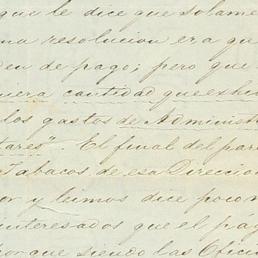 que le dice que solame
una resolucion era qu
den de pago; pero que
uera cantidad que
los gastos de Administ
tares". El final del par
Tabacos de esa Direccion
or y leimos dice poco
nteresados que el pág
porque siendo las Ofici